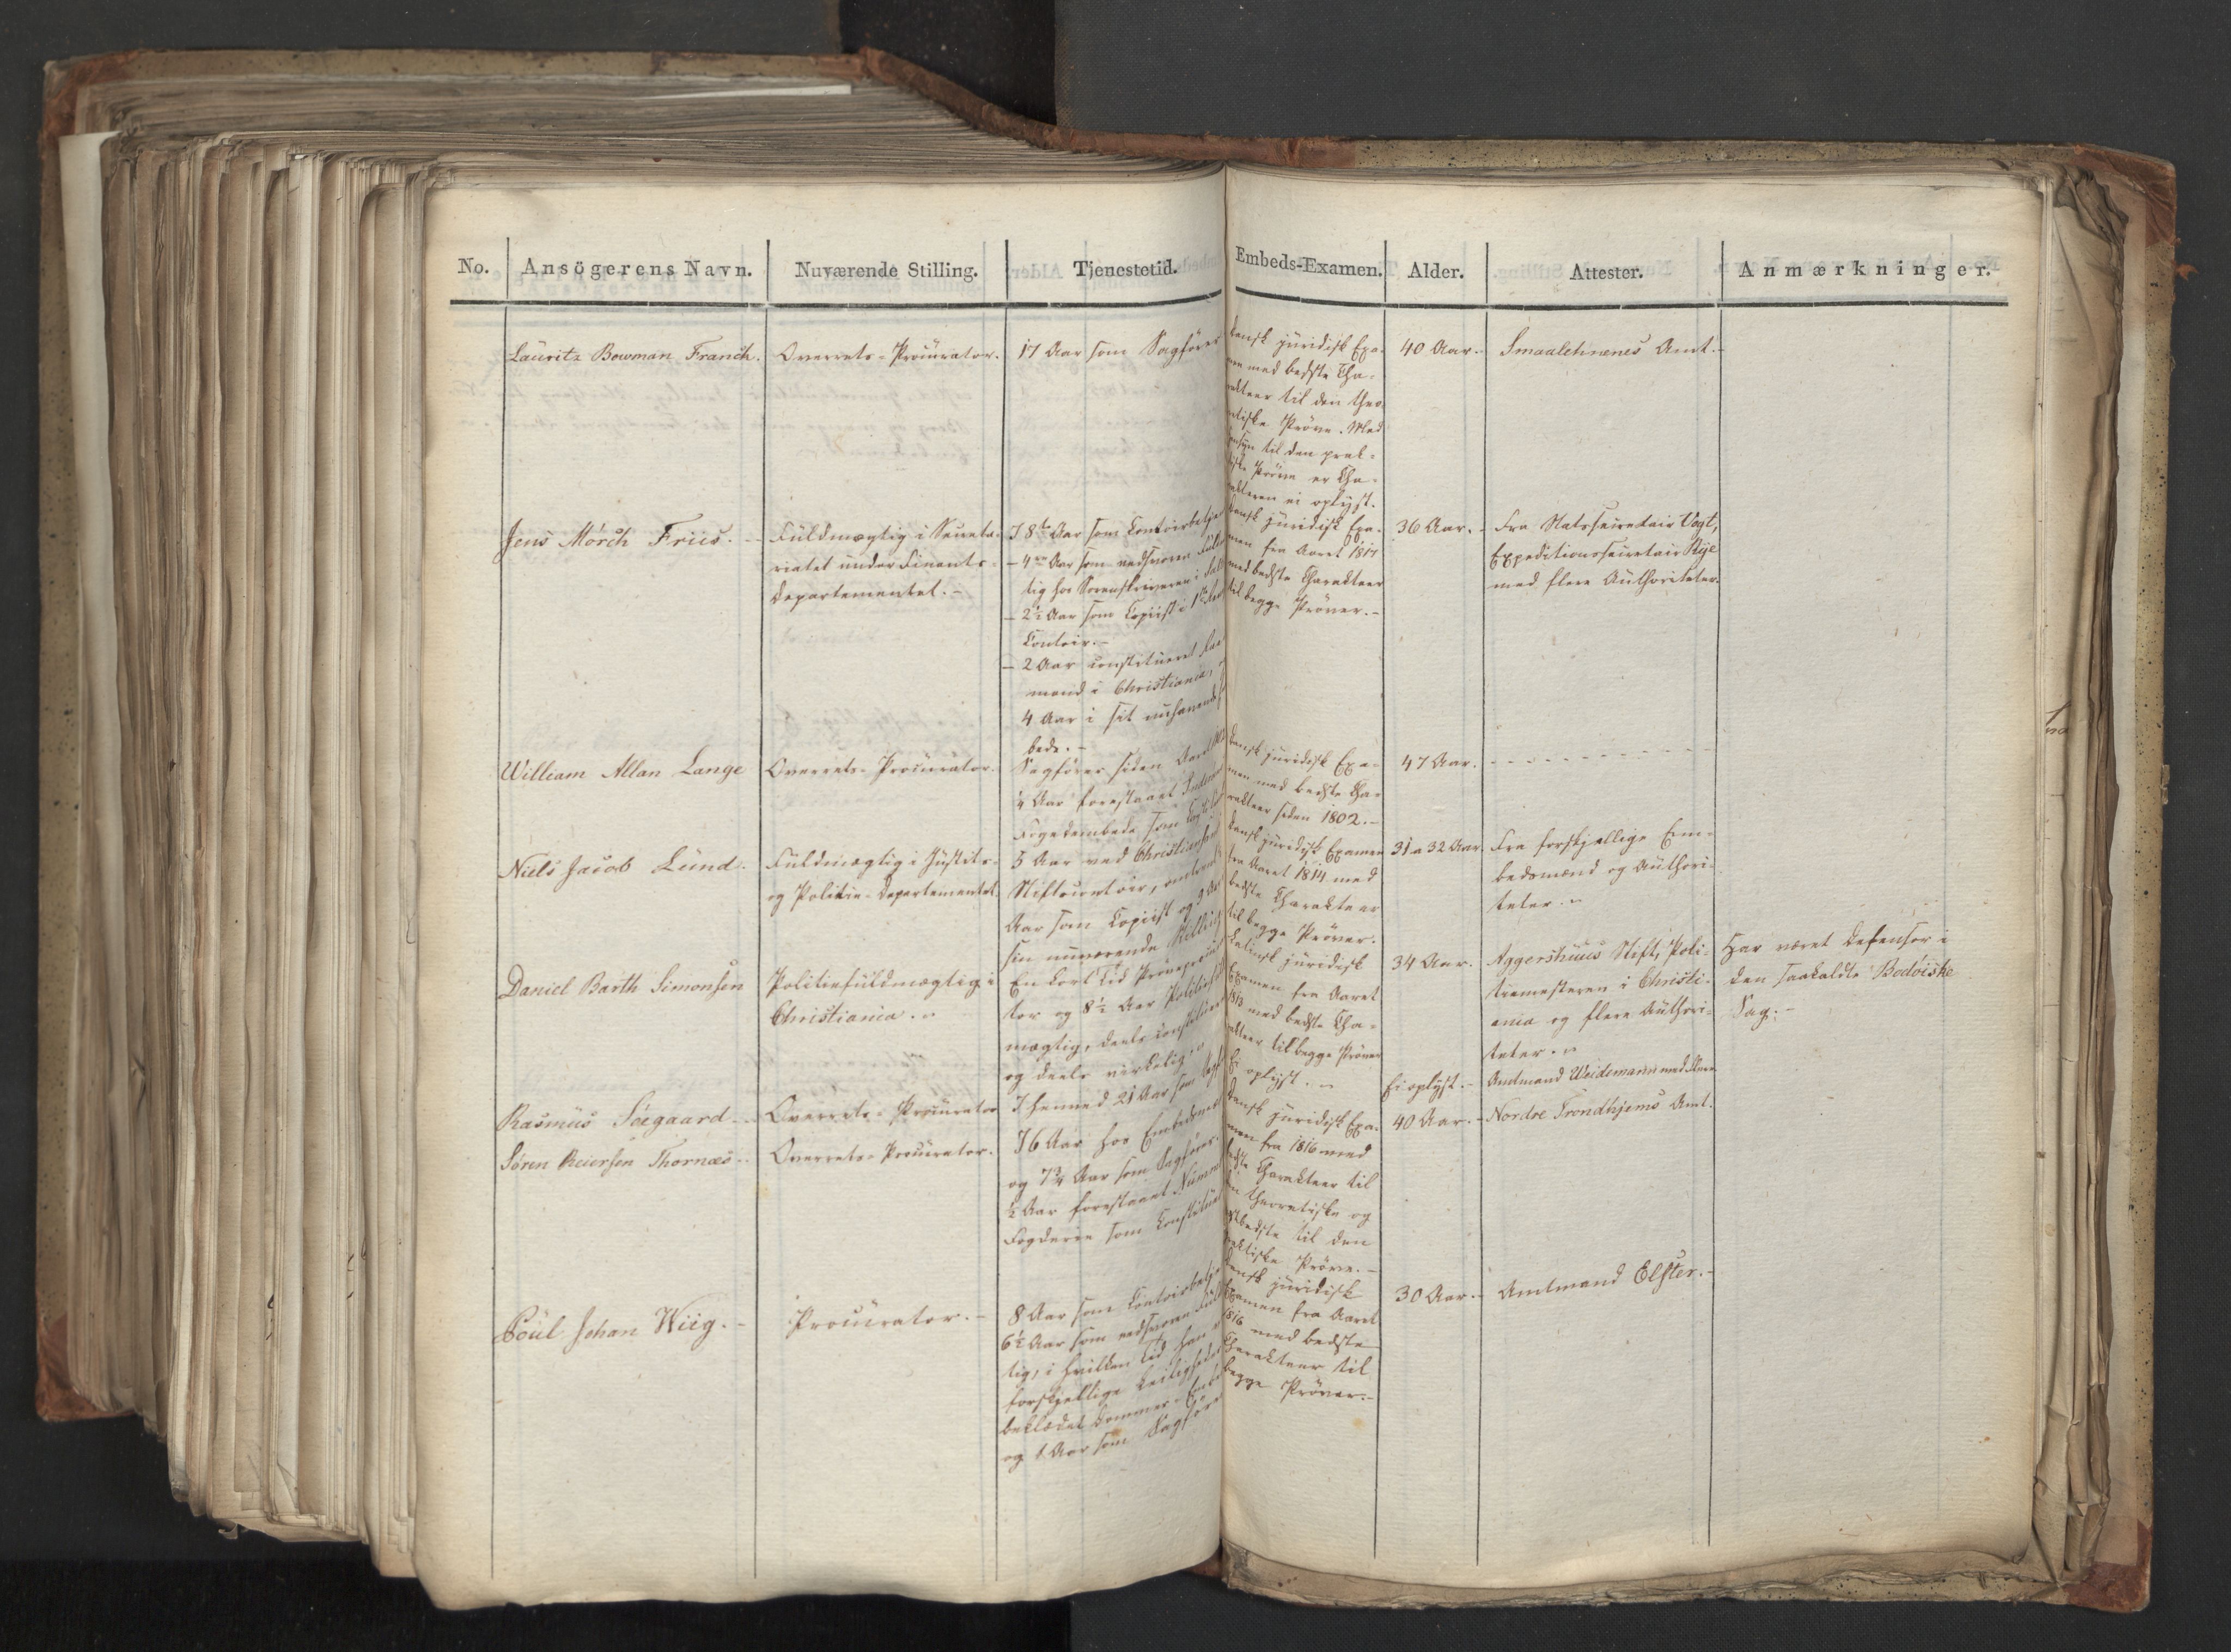 No. Ansögerens Navn. Nuværende Stilling. Tjenestetid. Embeds-Examen. Alder. Attester. Anmærkninger.
Lauritz Bowman Franch. Overrets-Procurator. 17 Aar som Sagfører
Dansk juridisk Exa-
men med bedste Cha-
rakteer til den theo-
retiske Prøve. Med
Hensyn til den prak-
tiske Prøve er Cha-
rakteren ei oplyst.
40 Aar. Smaalehnenes Amt.
Jens Mørch Friis. Fuldmægtig i Secreta-
riatet under Finants-
Departementet.
I 8te Aar som Contoirbetjent
- 4re Aar som eedsvoren Fuldm
tig hos Sorenskriveren i
- 2½ Aar som Copiist i 1ste
Contoir.
- 2 Aar constitueret
mand i Christiania,
4 Aar i sit nuhavende
bede.
Dansk juridisk Exa-
men fra Aaret 1817
med bedste Charakteer
til begge Prøver.
36 Aar. Fra Statssecretair Vogt,
Expeditionssecretair Rye
med flere Authoriteter.
William Allan Lange Overrets-Procurator.
Sagfører siden Aaret
¼ Aar forestaaet
Fogedembede som
Dansk juridisk Exa-
men med bedste Cha-
rakteer siden 1802.
47 Aar. - - - - - - - - -
Niels Jacob Lund. Fuldmægtig i Justits-
og Politie-Departementet.
5 Aar ved Christiansands
Stiftscontoir, omtrent
Aar som Copiist og 3 Aar
sin nuværende Stilling
Dansk juridisk Examen
fra Aaret 1814 med
bedste Charakteer
til begge Prøver.
31 a 32 Aar. Fra forskjellige Em-
bedsmænd og Authori-
teter.
Daniel Barth Simonsen Politiefuldmægtig i
Christiania.
En kort Tid Prøveprocura
tor og 8½ Aar Politiefuld
mægtig, deels constitueret
og deels virkelig.
Latinsk juridisk
Examen fra Aaret
1813 med bedste Cha-
rakteer til begge Prøver
34 Aar. Aggershuus Stift, Poli-
tiemesteren i Christi-
ania og flere Authori-
teter.
Har været Defensor i
den saakaldte Bodøiske
Sag.
Rasmus Søegaard Overrets-Procurator I henved 21 Aar som Sagf
Ei oplyst. Ei oplyst. Amtmand Weidemann med flere
Søren Reiersen Thornæs Overrets-Procurator.
I 6 Aar hos Embedsmænd
og 7¾ Aar som Sagfører.
½ Aar forestaaet Nummedals
Fogderie som Constitueret
Dansk juridisk Exa-
men fra 1816 med
bedste Charakteer til
den theoretiske og
næstbedste til den
praktiske Prøve.
40 Aar. Nordre Trondhjems Amt.
Poul Johan Wiig. Procurator.
8 Aar som Contoirbetje
6½ Aar som eedsvoren Fuld
tig, i hvilken Tid han
forskjellige Leiligheder
beklædet Dommer-Embe
og 1 Aar som Sagfører
Dansk juridisk
Examen fra Aaret
1816 med bedste
Charakteer til
begge Prøver.
30 Aar. Amtmand Elster.